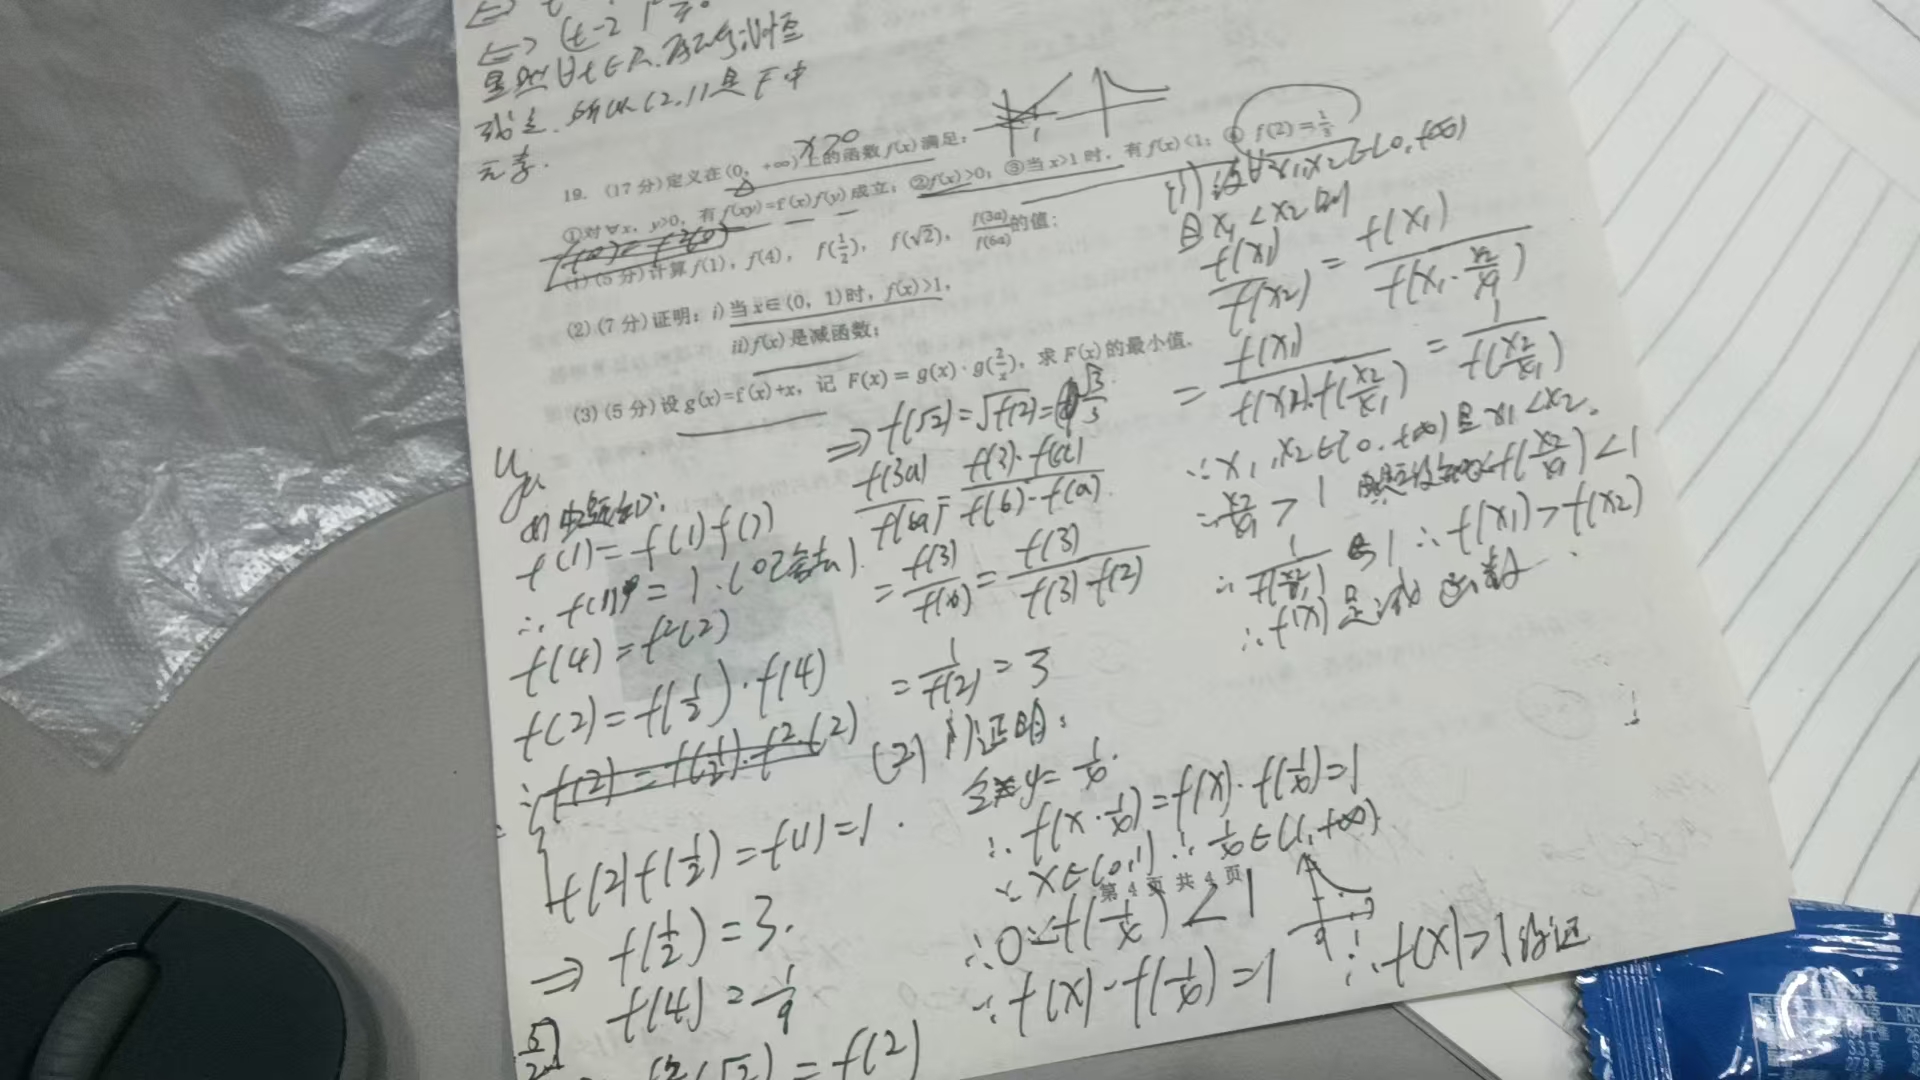 (t-2)²≥0
显然∀t∈R.
成立.所以(2,1)是F中
元素.
x>0
19. (17分)定义在(0, +∞)上的函数f(x)满足:
①对∀x, y>0, 有f(xy)=f(x)f(y)成立; ②f(x)>0; ③当x>1时, 有f(x)<1; ④ f(2)=1/3
f(0)=f²(0)
(1)(5分)计算f(1), f(4), f(1/2), f(√2), f(3a)/f(6a)的值;
(2)(7分)证明: i)当x∈(0, 1)时, f(x)>1,
ii)f(x)是减函数;
(3)(5分)设g(x)=f(x)+x, 记 F(x)=g(x)·g(2/x), 求F(x)的最小值.
(1)由题知:
f(1)=f(1)f(1)
∴f(1)=1.(0舍去)
f(4)=f²(2)
f(2)=f(1/2)·f(4)
∴f(2)=f(1/2)·f²(2)
f(2)f(1/2)=f(1)=1.
⇒f(1/2)=3.
f(4)=1/9
f²(√2)=f(2)
⇒f(√2)=√f(2)=√3/3
f(3a)/f(6a)=f(3)·f(a)/f(6)·f(a)
=f(3)/f(6)=f(3)/f(3)·f(2)
=1/f(2)=3
(2) i)证明:
令y=1/x.
∴f(x·1/x)=f(x)·f(1/x)=1
∵x∈(0,1) ∴1/x∈(1,+∞)
第 4 页 共 4 页
∴0<f(1/x)<1
∵f(x)·f(1/x)=1
∴f(x)>1得证
(ii)设∀x₁,x₂∈(0,+∞)
且x₁<x₂则
f(x₁)/f(x₂)=f(x₁)/f(x₁·x₂/x₁)
=f(x₁)/f(x₁)·f(x₂/x₁)=1/f(x₂/x₁)
∵x₁,x₂∈(0,+∞)且x₁<x₂.
∴x₂/x₁>1 f(x₂/x₁)<1
∴1/f(x₂/x₁)>1 ∴f(x₁)>f(x₂)
∴f(x)是减函数.